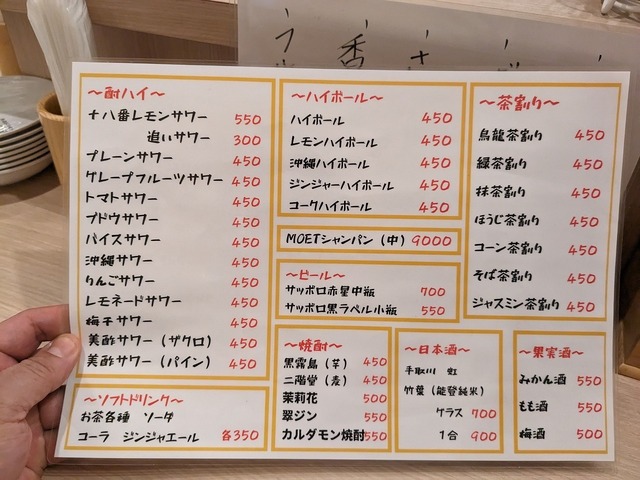 ～酎ハイ～
十八番レモンサワー 550
追いサワー 300
プレーンサワー 450
グレープフルーツサワー 450
トマトサワー 450
ブドウサワー 450
バイスサワー 450
沖縄サワー 450
りんごサワー 450
レモネードサワー 450
梅干サワー 450
美酢サワー（ザクロ） 450
美酢サワー（パイン） 450
～ソフトドリンク～
お茶各種 ソーダ
コーラ ジンジャエール 各350
～ハイボール～
ハイボール 450
レモンハイボール 450
沖縄ハイボール 450
ジンジャーハイボール 450
コークハイボール 450
MOETシャンパン（中） 9000
～ビール～
サッポロ赤星中瓶 700
サッポロ黒ラベル小瓶 550
～焼酎～
黒霧島（芋） 450
二階堂（麦） 450
茉莉花 500
翠ジン 550
カルダモン焼酎 550
～日本酒～
手取川 虹
竹葉（能登純米）
グラス 700
1合 900
～茶割り～
烏龍茶割り 450
緑茶割り 450
抹茶割り 450
ほうじ茶割り 450
コーン茶割り 450
そば茶割り 450
ジャスミン茶割り 450
～果実酒～
みかん酒 550
もも酒 550
梅酒 500